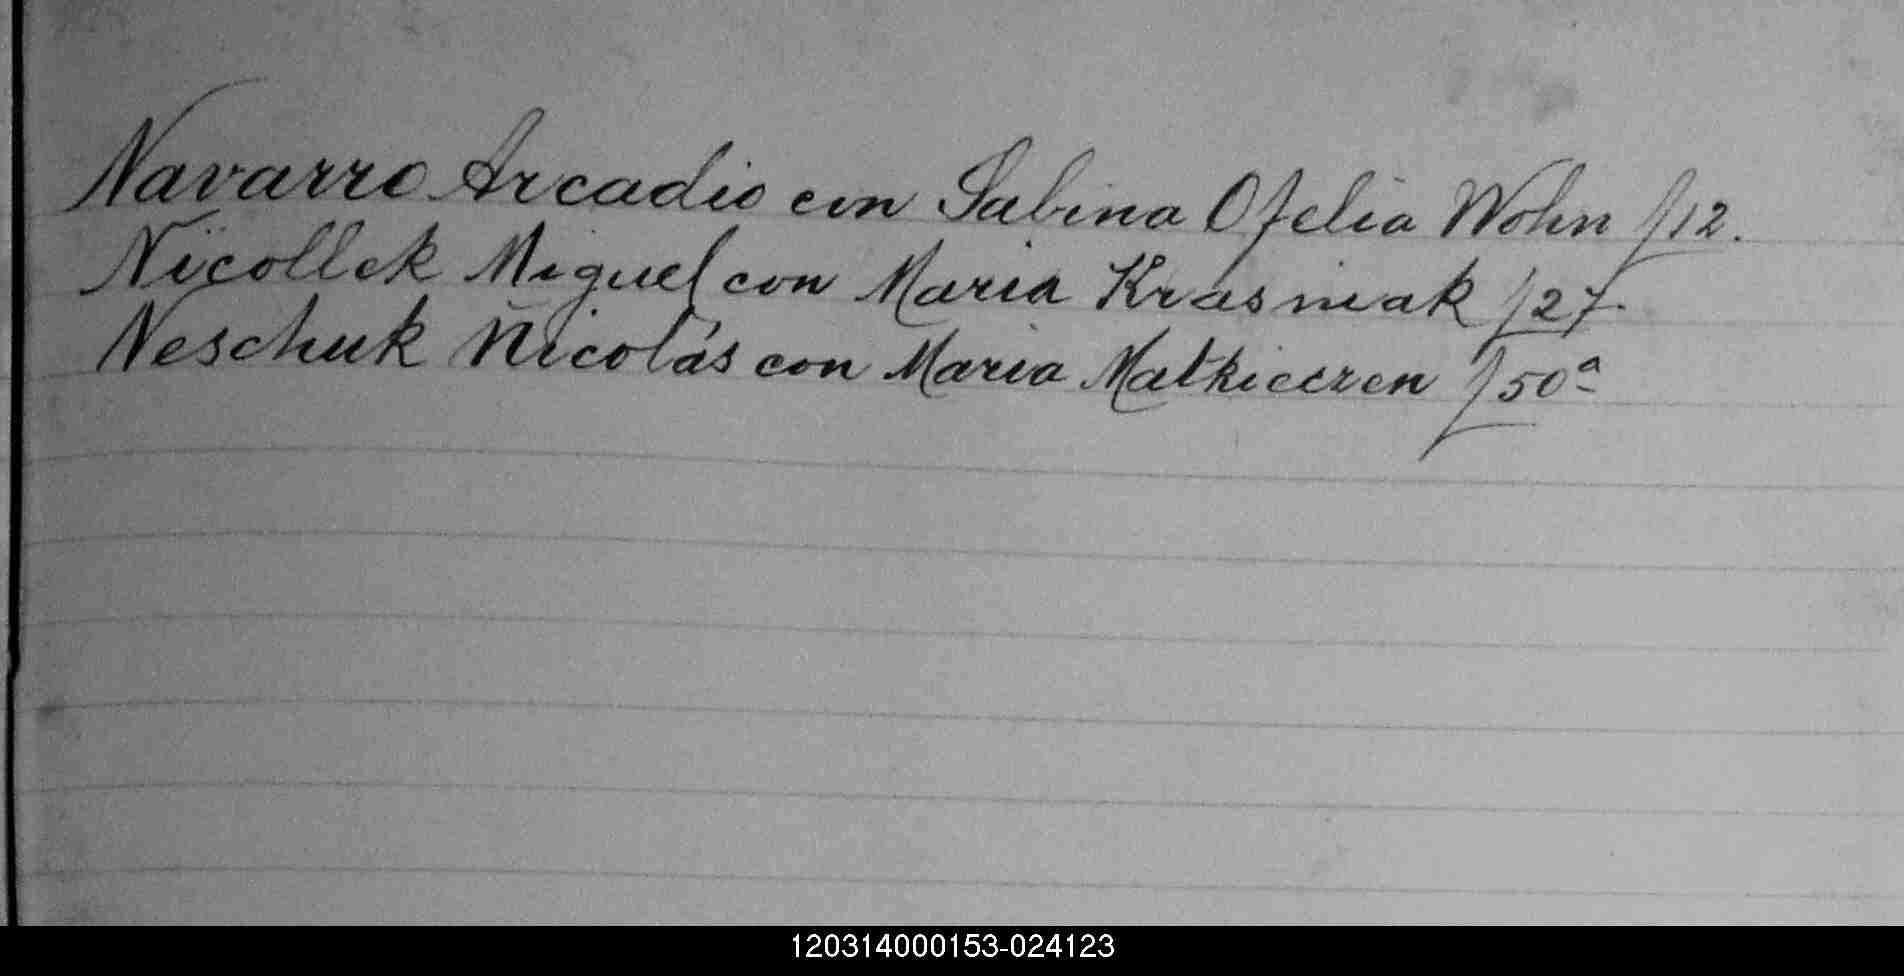 Navarro Arcadio con Sabina Ofelia Wohn f/12.
Nicollek Miguel con Maria Krasniak f/27.
Neschuk Nicolás con Maria Matkieczen f/50ª
120314000153-024123